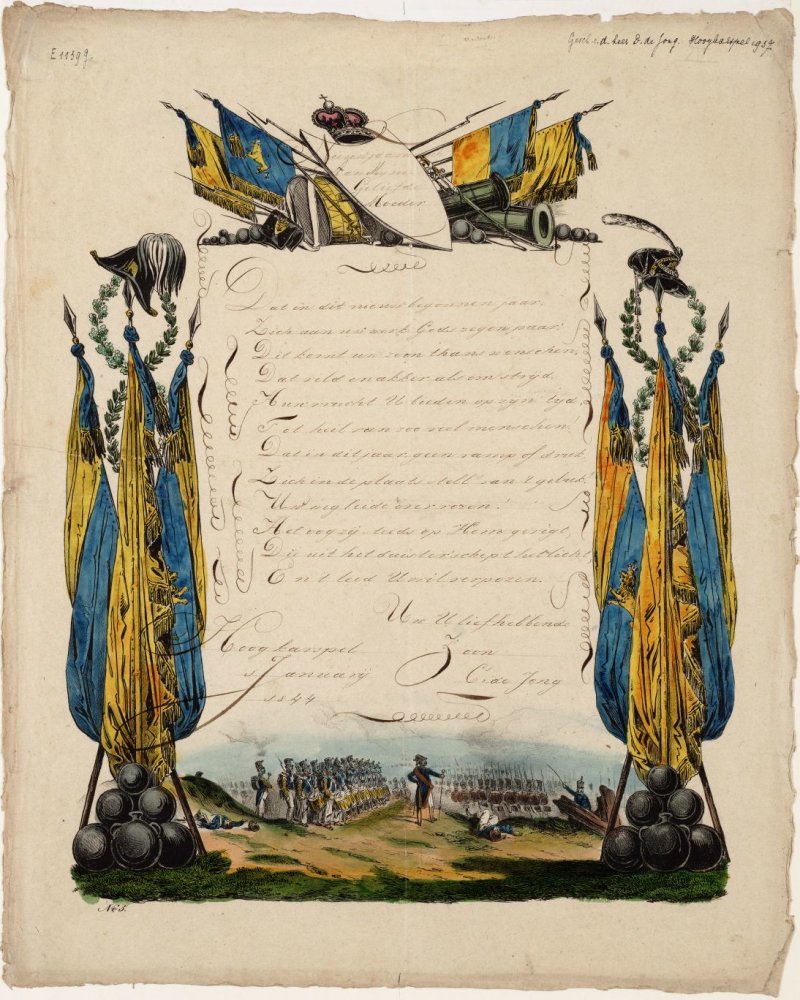 E 11399
Gesch. v. d. heer D. de Jong. Hoogkarspel 1937
Nieuwjaarswensch
Aan Myne
Geliefde
Moeder
Dat in dit nieuw begonnen jaar.
Zich aan uw werk Gods zegen paar!
Dit komt uw zoon thans wenschen,
Dat veld en akker, als om strijd.
Hun vrucht U bieden op zyn tyd.
Tot heil van zoo veel menschen.
Dat in dit jaar geen ramp of druk.
Zich in de plaats stell' van 't geluk.
Uw weg leide over rozen!
Het oog zij steeds op Hem gerigt,
Die uit het duister schept het licht
En 't leed U wil verpozen.
Uw U liefhebbende
Hoogkarspel
Zoon
1 Januarij
C. de Jong
1844
No. 5.